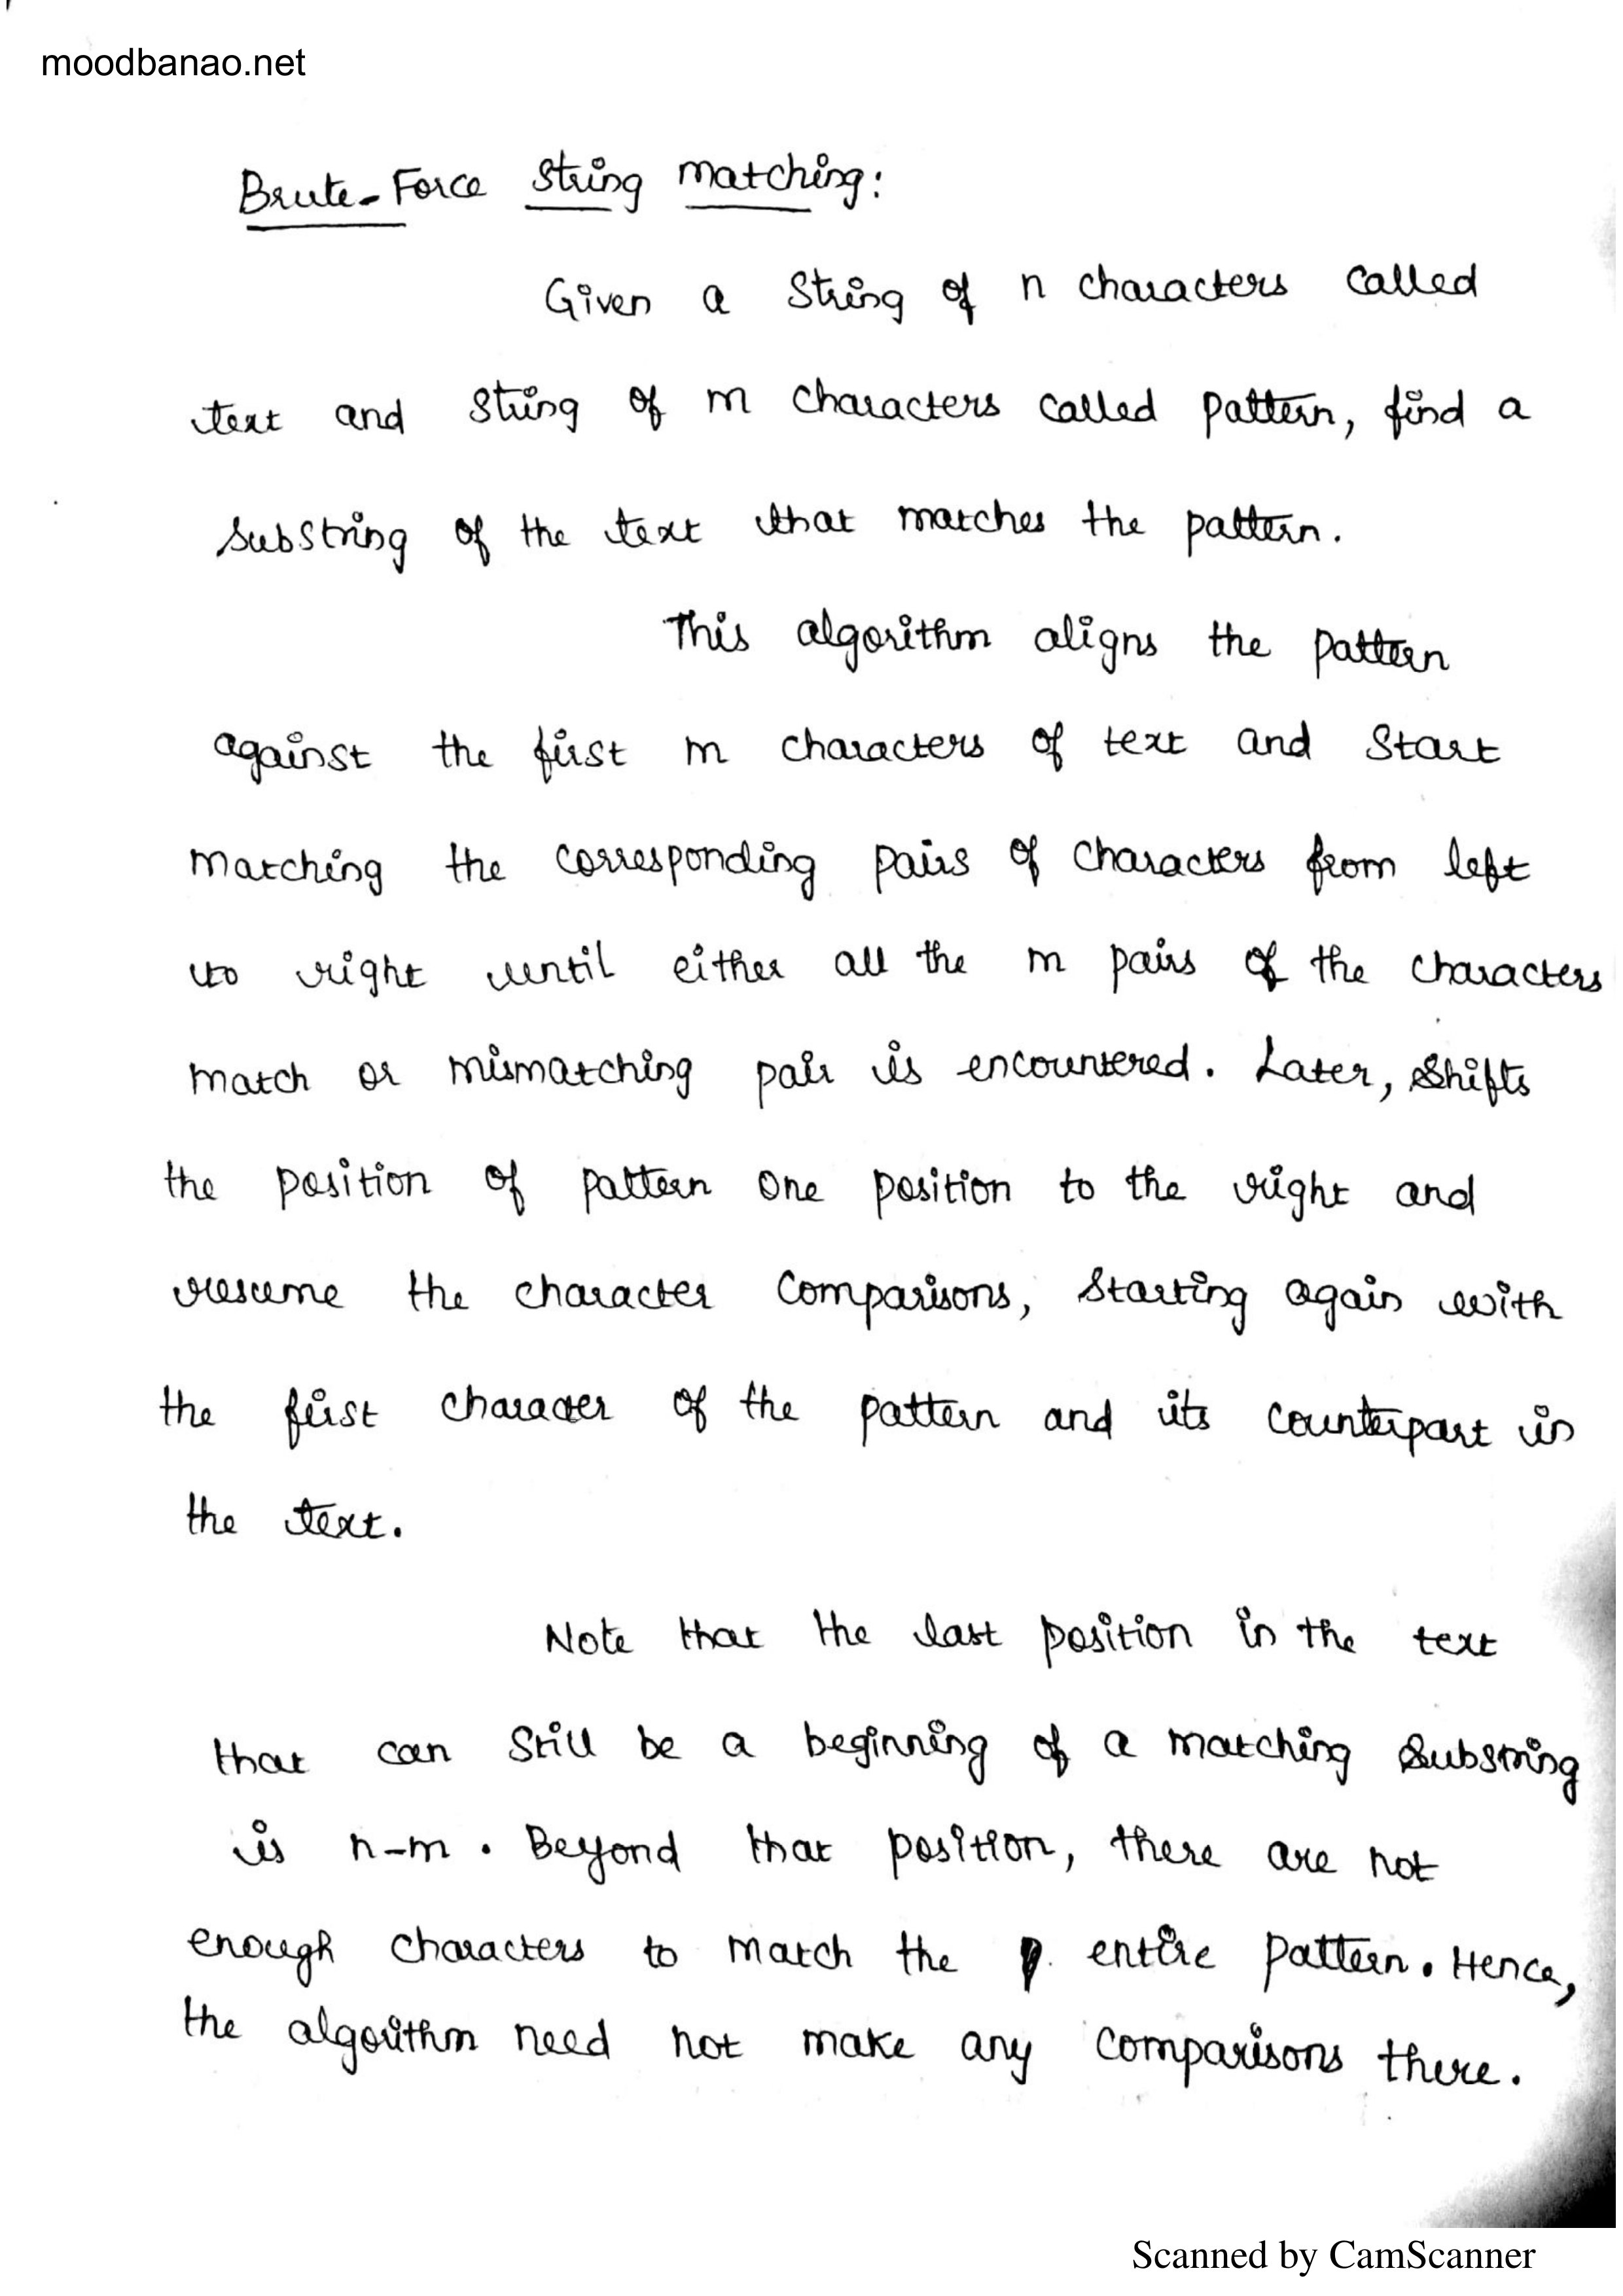 moodbanao.net
Brute-Force string matching:
Given a string of n characters called
text and string of m characters called pattern, find a
substring of the text that matches the pattern.
This algorithm aligns the pattern
against the first m characters of text and start
matching the corresponding pairs of characters from left
to right until either all the m pairs of the characters
match or mismatching pair is encountered. Later, shifts
the position of pattern one position to the right and
resume the character comparisons, starting again with
the first character of the pattern and its counterpart in
the text.
Note that the last position in the text
that can still be a beginning of a matching substring
is n-m. Beyond that position, there are not
enough characters to match the entire pattern. Hence,
the algorithm need not make any comparisons there.
Scanned by CamScanner